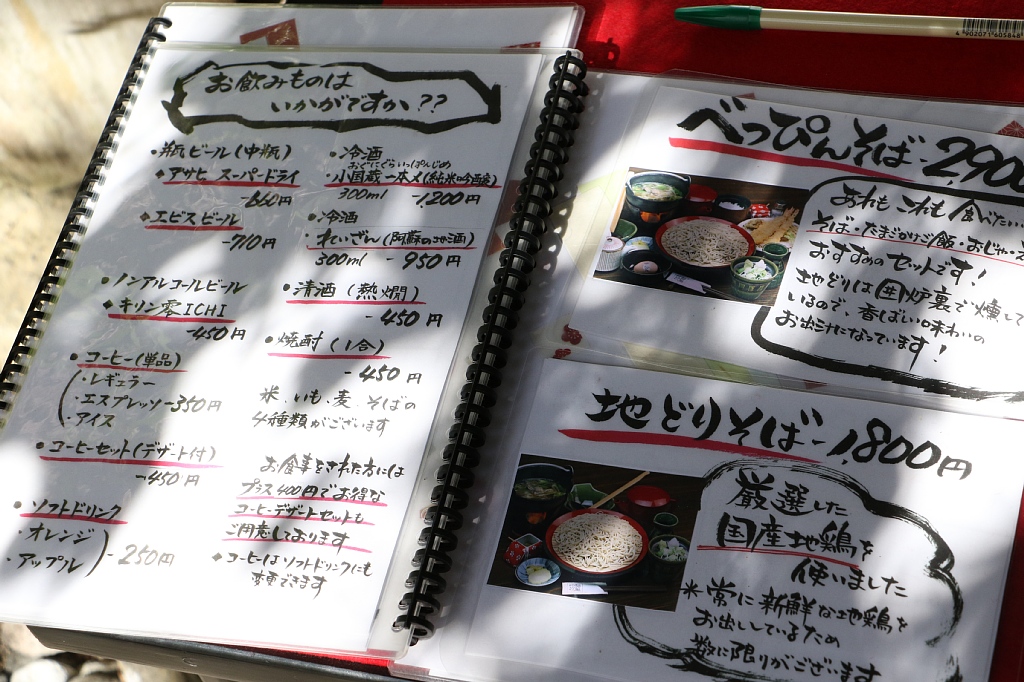 お飲みものは
いかがですか??
・瓶ビール(中瓶)
◆アサヒ スーパードライ
-660円
◆エビスビール
-710円
・ノンアルコールビール
◆キリン零ICHI
-450円
・コーヒー(単品)
・レギュラー
・エスプレッソ-350円
・アイス
・コーヒーセット(デザート付)
-450円
・ソフトドリンク
・オレンジ
・アップル
-250円
・冷酒
おぐにぐらいっぽんじめ
・小国蔵一本〆(純米吟醸)
300ml -1,200円
・冷酒
・れいざん(阿蘇の酒)
300ml - 950円
・清酒(熱燗)
-450円
・焼酎(1合)
-450円
米、いも、麦、そばの
4種類がございます
お食事をされた方には
プラス400円でお得な
コーヒーデザートセットも
ご用意しております
◆コーヒーはソフトドリンクにも
変更できます
4 902071 605848
べっぴんそば-2,900
あれもこれも食べたい
そば・たまごかけご飯・おじや
おすすめのセットです!
地どりは囲炉裏で燻して
いるので、香ばしい味わいの
お出汁になっています!
地どりそば-1,800円
厳選した
国産地鶏を
使いました
※常に新鮮な地鶏を
お出ししているため
数に限りがございます